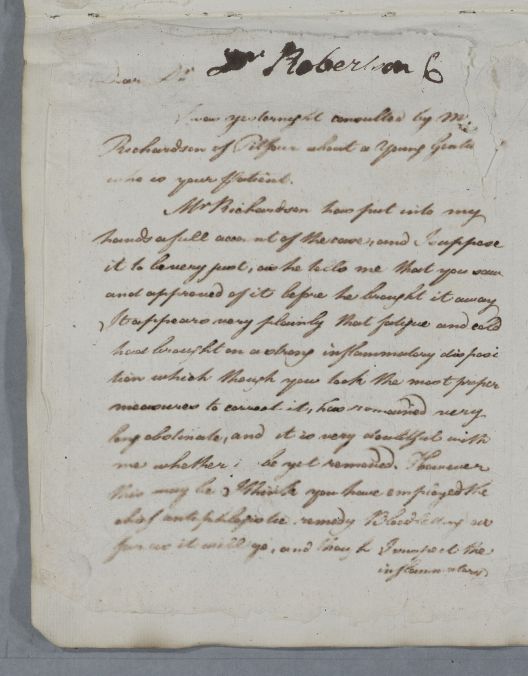 Dr Roberson 6
Dear Dr
I was yesternight consulted by Mr
Richardson of Pitfour about a Young Gentn
who is your Patient.
Mr Richardson has put into my
hands a full account of the case, and I suppose
it to be very just, as he tells me that you saw
and approved of it before he brought it away
It appears very plainly that fatigue and cold
had brought on a strong inflammatory disposi
tion which though you took the most proper
measures to correct it, has remained very
long obstinate, and it is very doubtful with
me whether i be yet removed. However
this may be I think you have employed the
chief antiphlogistic remedy Bloodletting as
far as it will go, and though I suspect the
inflammatory